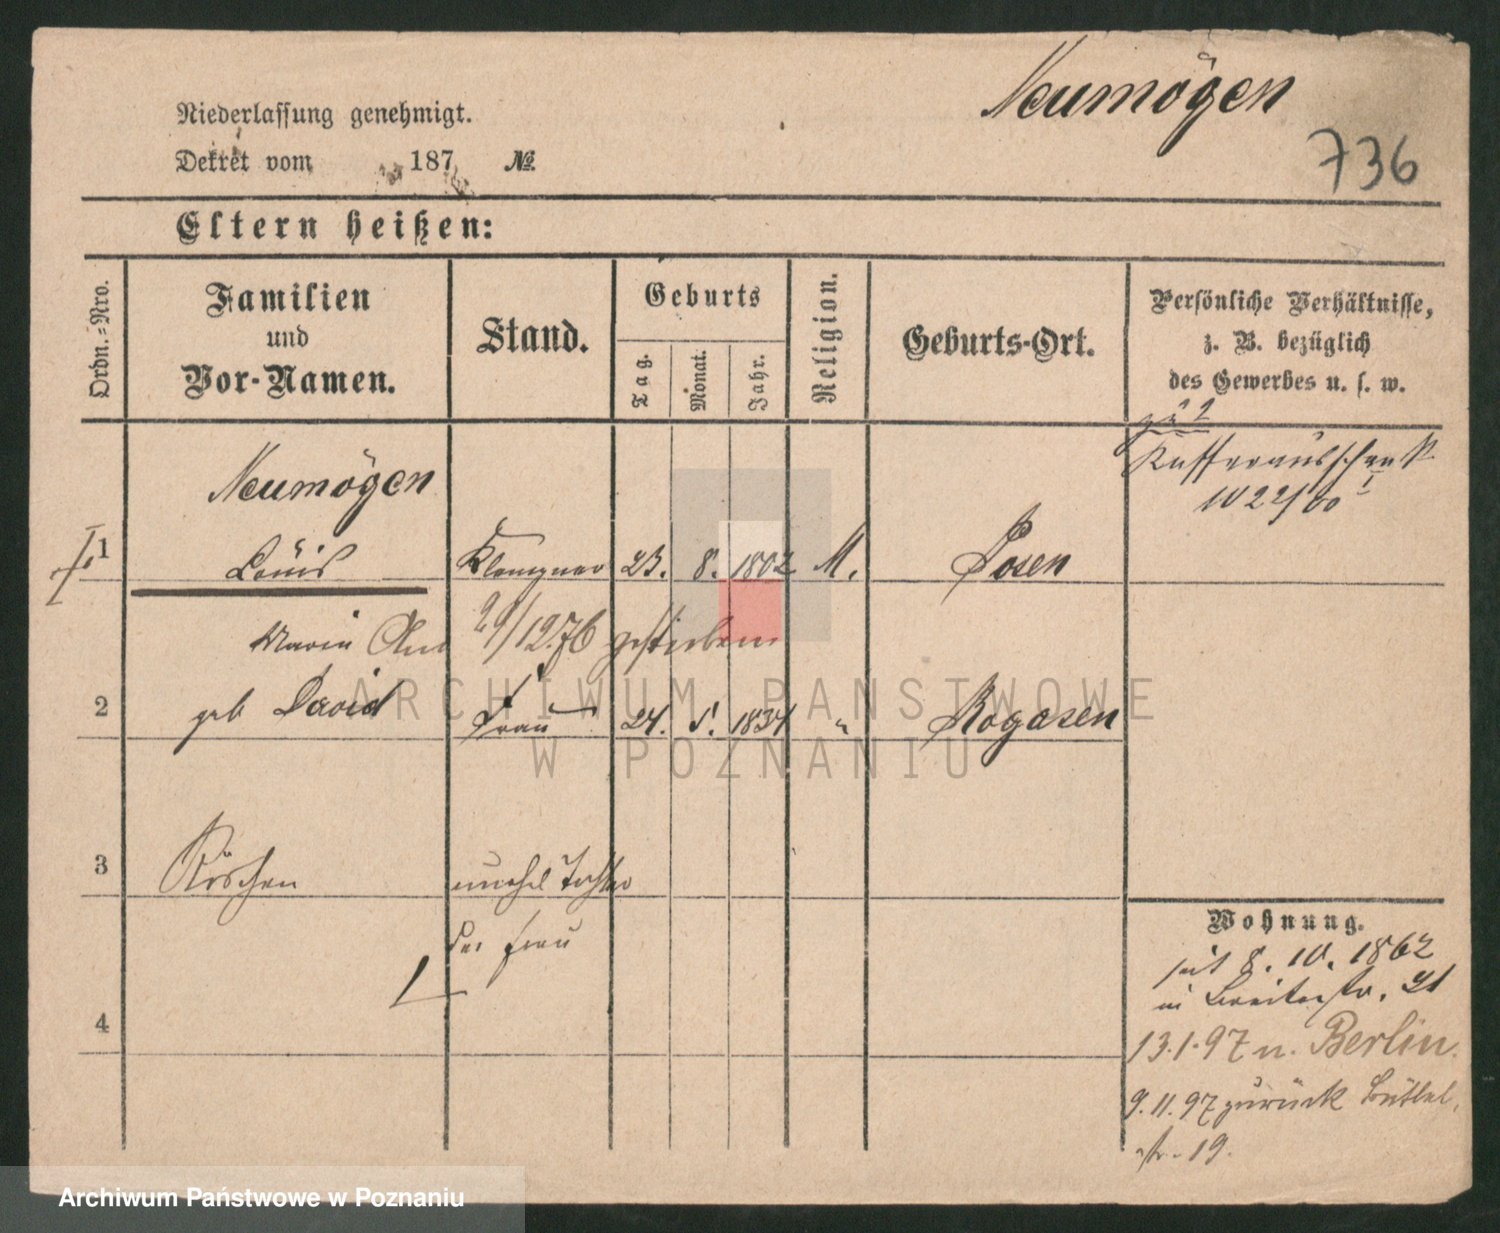 Neumögen
736
Niederlassung genehmigt.
Dekret vom 187 No.
Eltern heißen:
Ordn.=Nro.
Familien
und
Vor-Namen.
Stand.
Geburts
Tag.
Monat.
Jahr.
Religion.
Geburts-Ort.
Persönliche Verhältnisse,
z. B. bezüglich
des Gewerbes u. s. w.
zu 2
Kaffeeausschank
Neumögen
1 Louis Klempner 23. 8. 1802 M. Posen
29/12.76 gestorben
2 geb David Frau 24. 5. 1834 " Rogasen
3 Röschen unehel Tochter
der Frau
4
Wohnung.
seit 8. 10. 1862
in Breitestr. 21
13.1.97 n. Berlin.
9.11.97 zurück Büttel,
str. 19.
ARCHIWUM PAŃSTWOWE
W POZNANIU
Archiwum Państwowe w Poznaniu